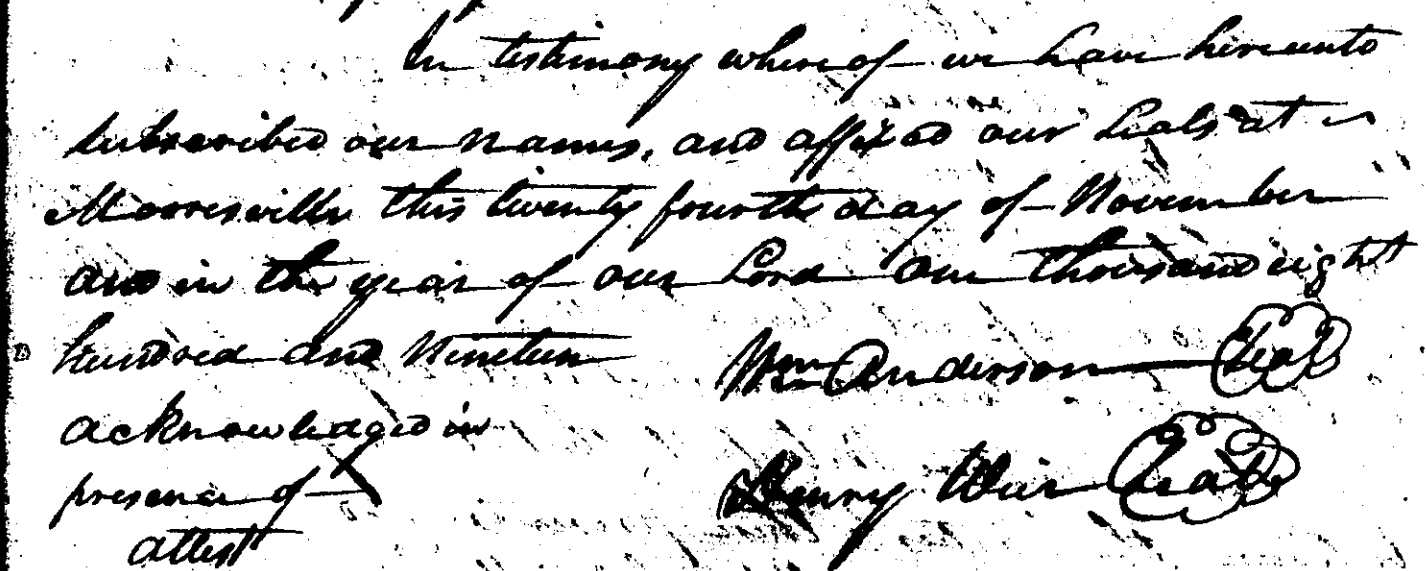 In testimony whereof we have hereunto
subscribed our names, and affixed our Seals at
Mooresville this twenty fourth day of November
and in the year of our Lord one thousand eight
hundred and Nineteen Wm Anderson Seal
acknowledged in
presence of Henry Weir Seal
attest